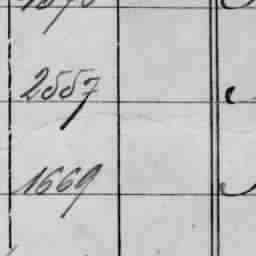 2557
1669